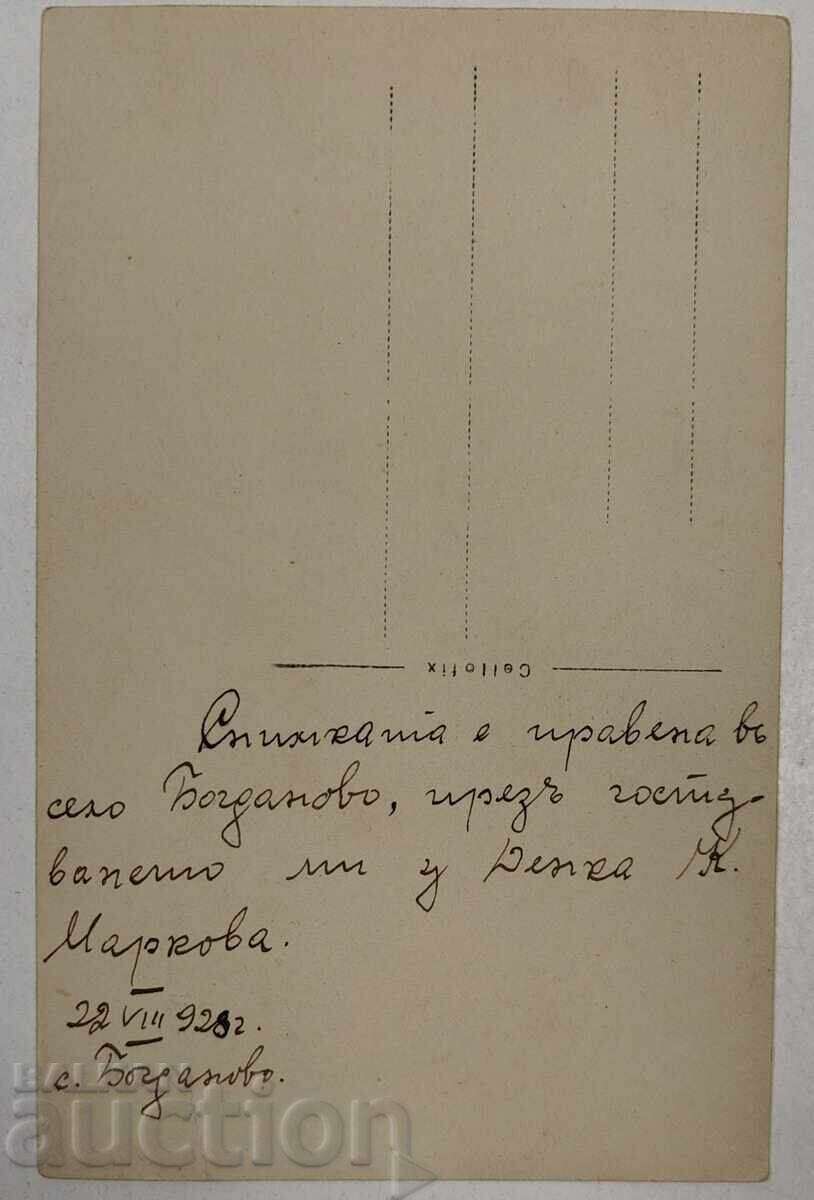 Cellofix
Снимката е правена въ
село Богданово, презъ госту-
ването ми у Денка К.
Маркова.
22 VIII 928 г.
с. Богданово.
BALKAN
auction